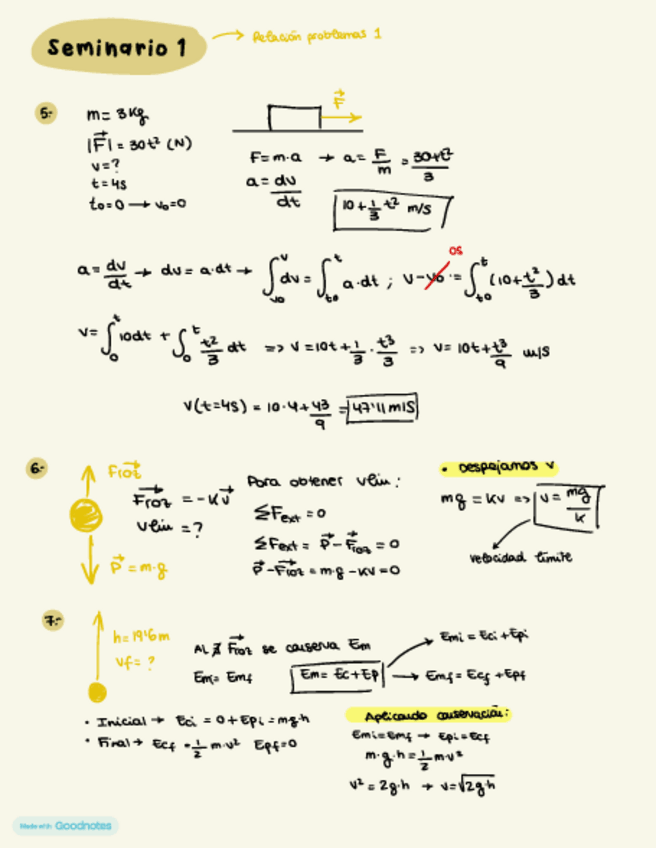 Seminario 1 → Relación problemas 1
5.-
m = 3 Kg
|F⃗| = 30t² (N)
v = ?
t = 4s
t₀ = 0 → v₀ = 0
F⃗
F = m·a → a = F/m = 30+t²/3
a = dv/dt
10 + 1/3 t² m/s
a = dv/dt → dv = a·dt → ∫_v₀^v dv = ∫_t₀^t a·dt ; v - v₀ = ∫_t₀^t (10 + t²/3) dt
0s
v = ∫_0^t 10dt + ∫_0^t t²/3 dt => v = 10t + 1/3 · t³/3 => v = 10t + t³/9 m/s
v(t=4s) = 10·4 + 4³/9 = 47'11 m/s
6.-
F⃗roz
F⃗roz = -Kv⃗
vlim = ?
P⃗ = m·g
Para obtener vlim:
ΣFext = 0
ΣFext = P⃗ - F⃗roz = 0
P⃗ - F⃗roz = m·g - Kv = 0
• Despejamos v
mg = Kv => v = mg/K
velocidad límite
7.-
h = 19'6 m
vf = ?
Al ∄ F⃗roz se conserva Em
Em₁ = Emf
Em = Ec + Ep
→ Emi = Eci + Epi
→ Emf = Ecf + Epf
• Inicial → Eci = 0 + Epi = mg·h
• Final → Ecf = 1/2 m·v² Epf = 0
Aplicando conservación:
Emi = Emf → Epi = Ecf
m·g·h = 1/2 m·v²
v² = 2g·h → v = √2g·h
Made with Goodnotes